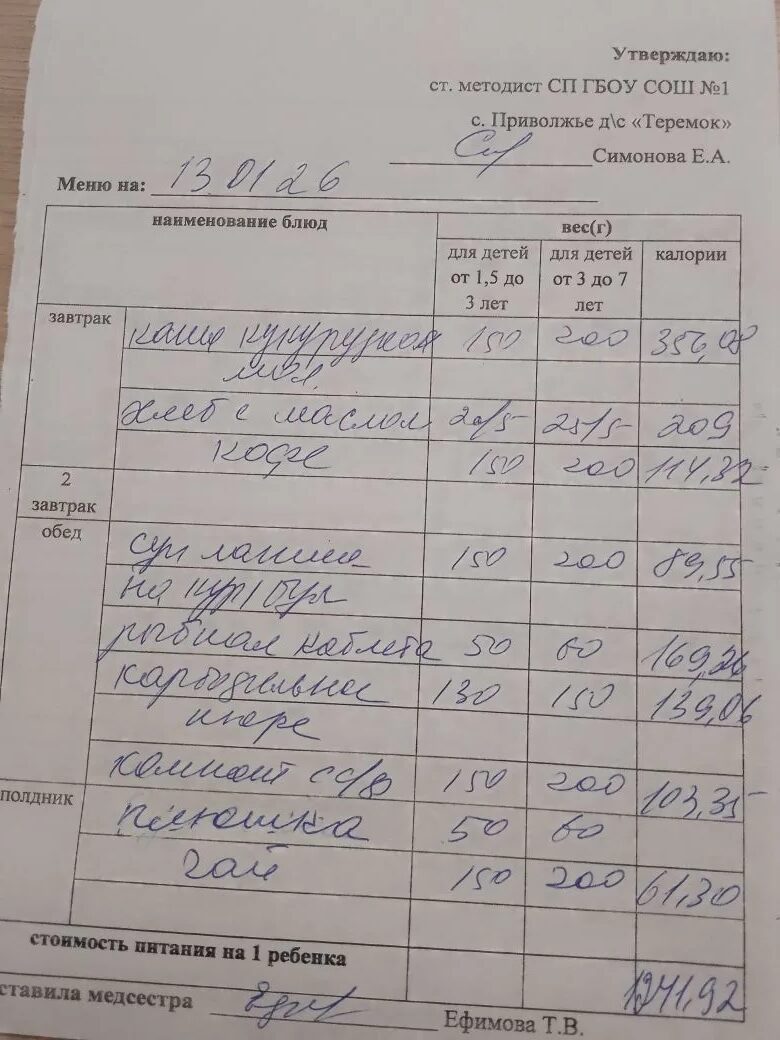 Утверждаю:
ст. методист СП ГБОУ СОШ №1
с. Приволжье д\с «Теремок»
Симонова Е.А.
Меню на: 13 01 26
наименование блюд вес(г)
для детей от 1,5 до 3 лет для детей от 3 до 7 лет калории
завтрак каша кукурузная 150 200 356,08
мол.
хлеб с маслом 20/5 25/5 209
кофе 150 200 114,32
2 завтрак
обед суп лапша 150 200 89,55
на кур/бул
рыбная каблета 50 60 169,26
картофельное 130 150 139,06
пюре
компот с/ф 150 200 103,35
полдник плюшка 50 60
чай 150 200 61,30
стоимость питания на 1 ребенка
1241,92
ставила медсестра Ефимова Т.В.